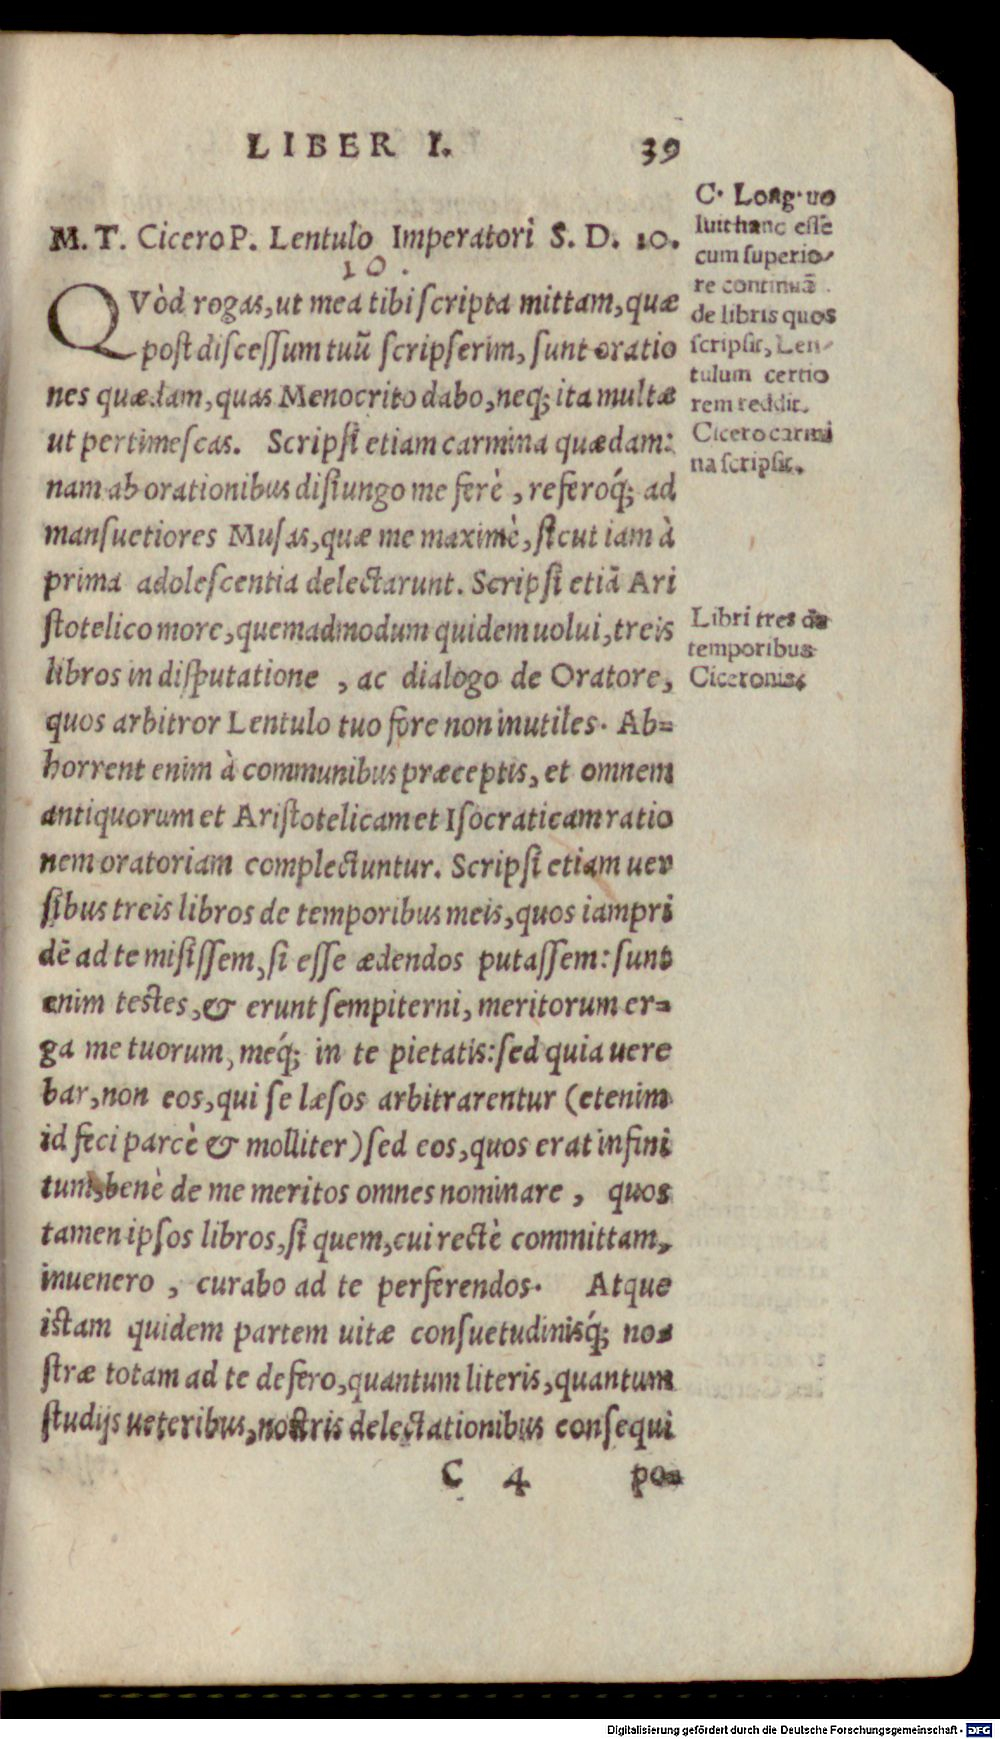 LIBER I. 39
M. T. Cicero P. Lentulo Imperatori S. D. 10.
10.
QVòd rogas, ut mea tibi scripta mittam, quæ
post discessum tuũ scripserim, sunt oratio
nes quædam, quas Menocrito dabo, neq; ita multæ
ut pertimescas. Scripsi etiam carmina quædam:
nam ab orationibus disiungo me ferè, referoq́; ad
mansuetiores Musas, quæ me maximè, sicut iam à
prima adolescentia delectarunt. Scripsi etiã Ari
stotelico more, quemadmodum quidem uolui, treis
libros in disputatione, ac dialogo de Oratore,
quos arbitror Lentulo tuo fore non inutiles. Ab=
horrent enim à communibus præceptis, et omnem
antiquorum et Aristotelicam et Isocraticam ratio
nem oratoriam complectuntur. Scripsi etiam uer
sibus treis libros de temporibus meis, quos iampri
dẽ ad te misissem, si esse ædendos putassem: sunt
enim testes, & erunt sempiterni, meritorum er=
ga me tuorum, meq́; in te pietatis: sed quia uere
bar, non eos, qui se læsos arbitrarentur (etenim
id feci parcè & molliter) sed eos, quos erat infini
tum, benè de me meritos omnes nominare, quos
tamen ipsos libros, si quem, cui rectè committam,
inuenero, curabo ad te perferendos. Atque
istam quidem partem uitæ consuetudinisq́; no=
stræ totam ad te defero, quantum literis, quantum
studijs ueteribus, nostris delectationibus consequi
C 4 po=
C. Long. uo
luit hanc esse
cum superio-
re continuã
de libris quos
scripsit, Len-
tulum certio
rem reddit.
Cicero carmi
na scripsit.
Libri tres de
temporibus
Ciceronis.
Digitalisierung gefördert durch die Deutsche Forschungsgemeinschaft - DFG